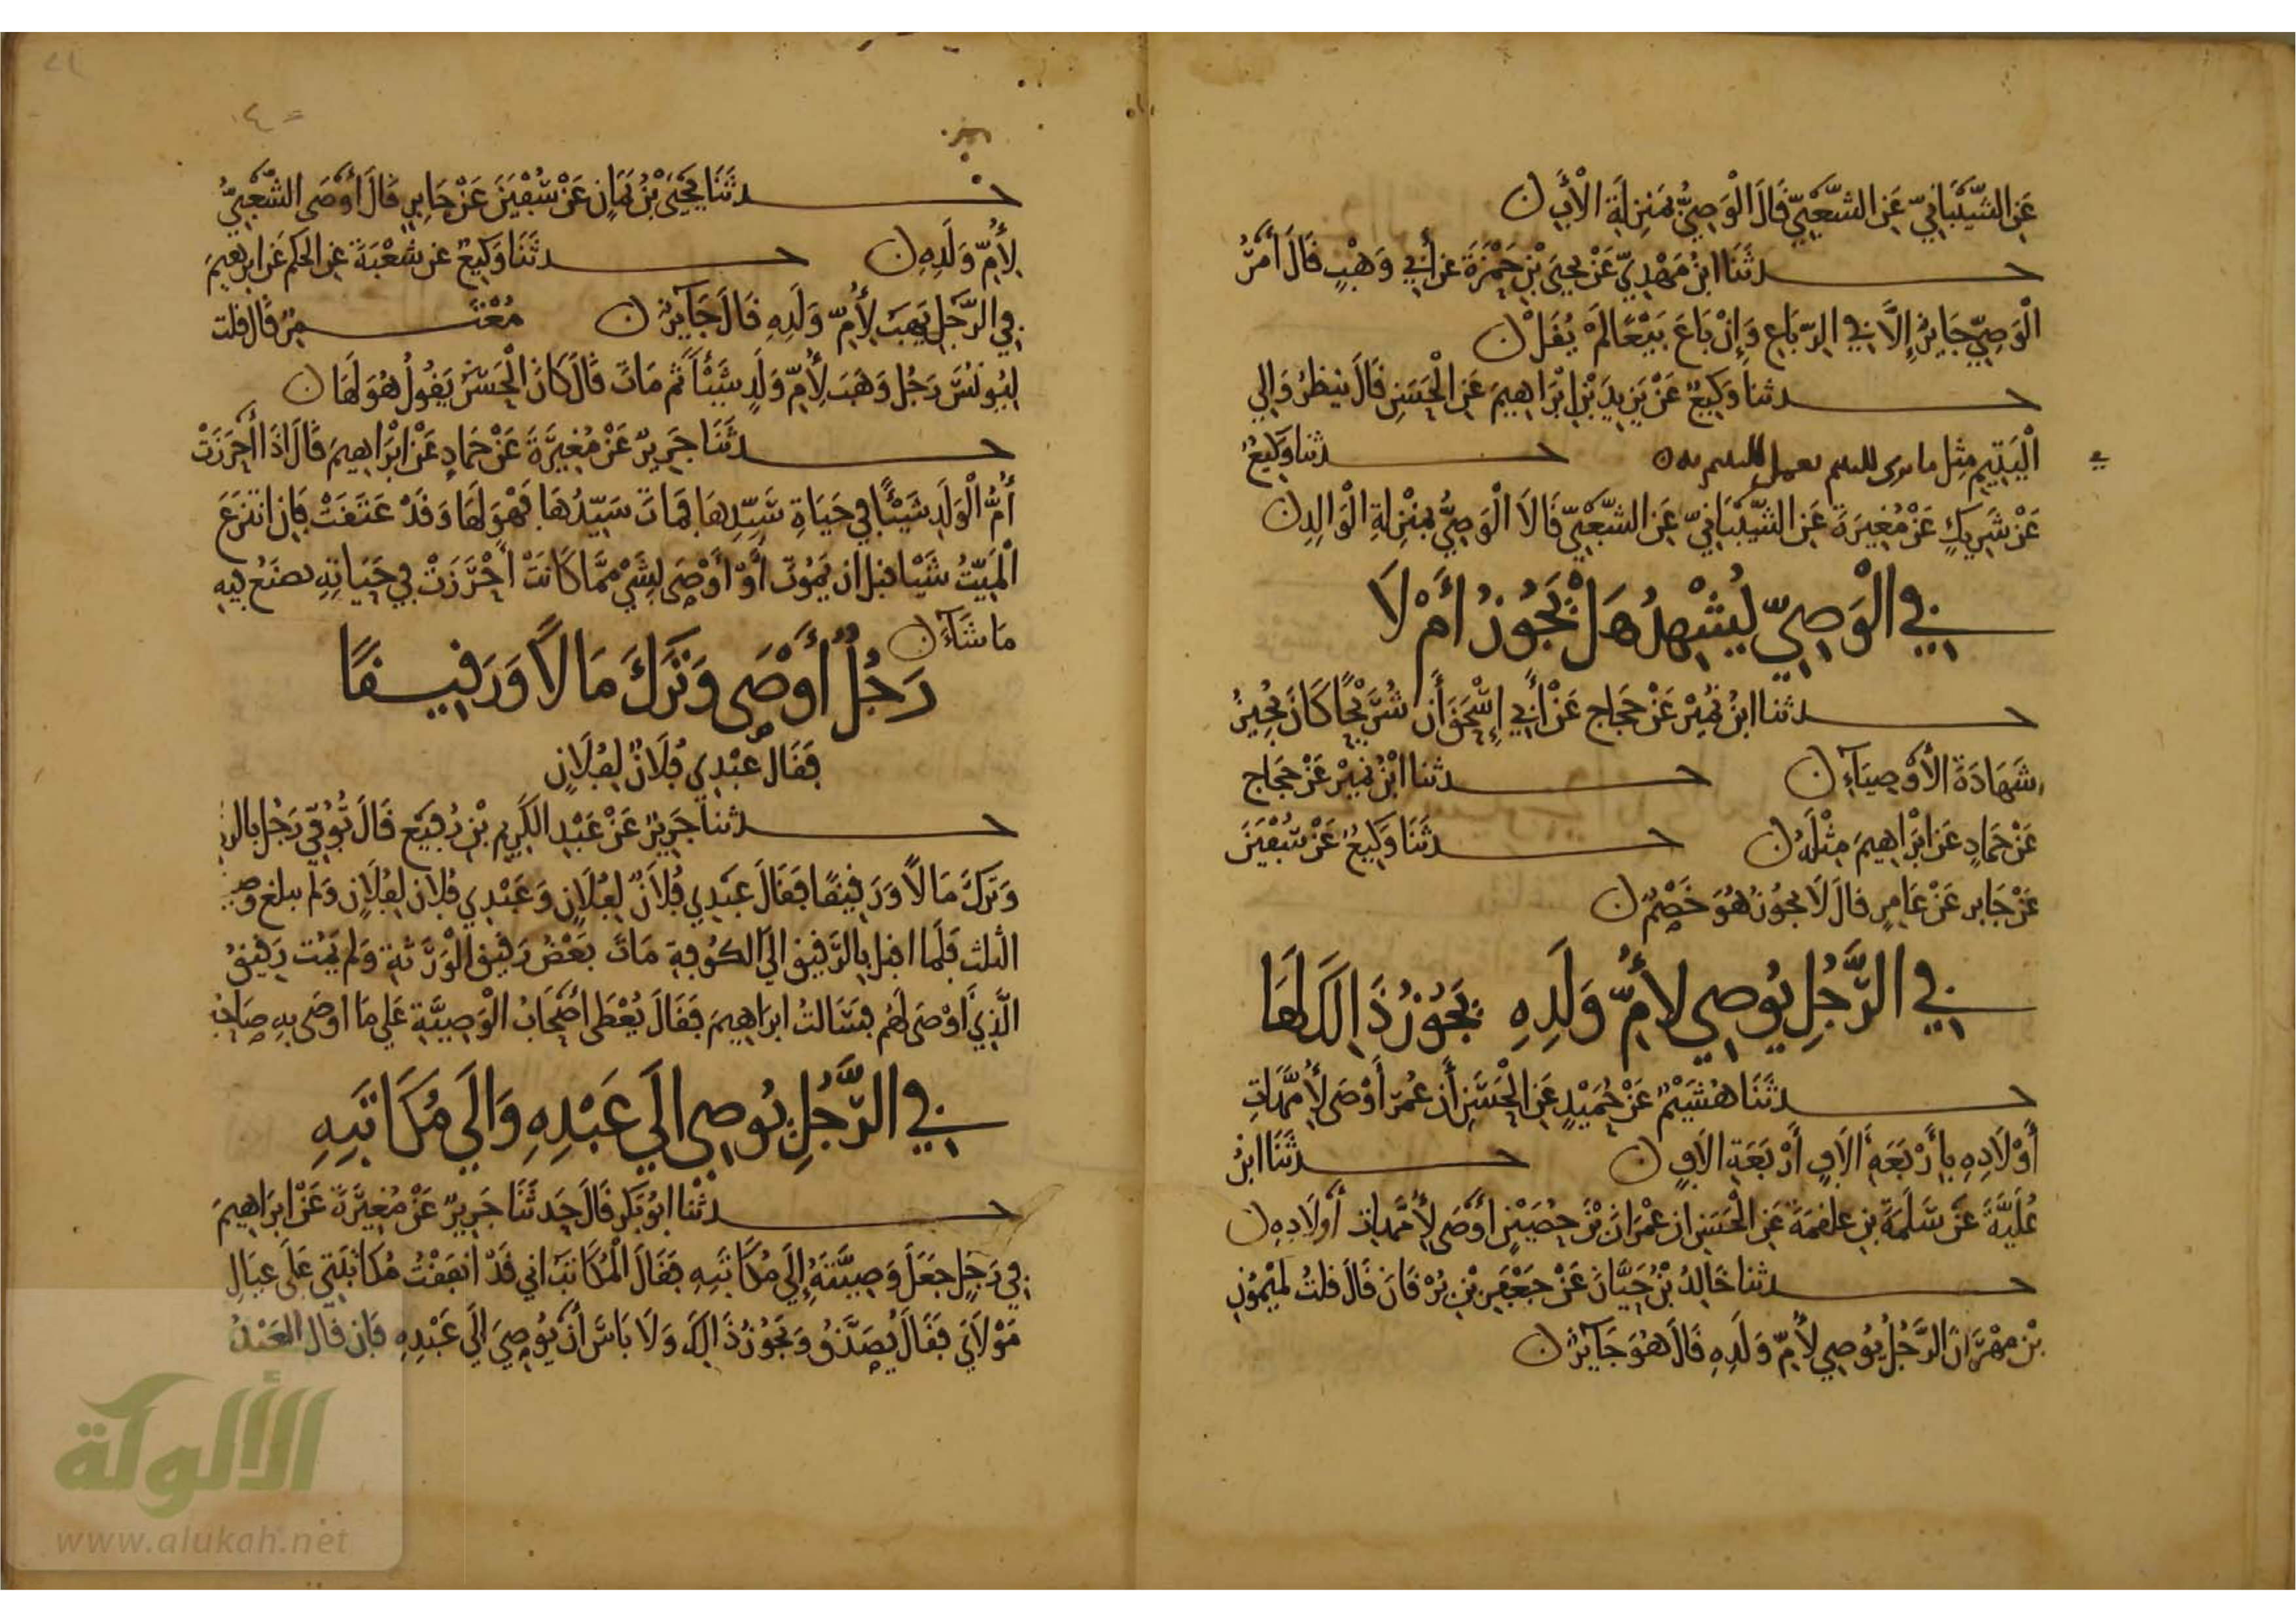 عَنِ الشَّيْبَانِيِّ عَنِ الشَّعْبِيِّ قَالَ الْوَصِيُّ بِمَنْزِلَةِ الْأَبِ ن
حدثَنَا ابْنُ مَهْدِيٍّ عَنْ يَحْيَى بْنِ حَمْزَةَ عَنْ أَبِي وَهْبٍ قَالَ أَمْرُ
الْوَصِيِّ جَايِزٌ إِلَّا فِي الرِّبَاعِ وَإِنْ بَاعَ بَيْعًا لَمْ يُقَلْ ن
حدثنا وَكِيعٌ عَنْ يَزِيدَ بْنِ إِبْرَاهِيمَ عَنِ الْحَسَنِ قَالَ ينظرُ وَالِي
الْيَتِيمِ مِثْل ما يرى لليتيم يعمل لليتيم به ن حدثنا وَكِيعٌ
عَنْ شَرِيكٍ عَنْ مُغِيرَةَ عَنِ الشَّيْبَانِيِّ عَنِ الشَّعْبِيِّ قَالَا الْوَصِيُّ بِمَنْزِلَةِ الْوَالِدِ ن
فِي الْوَصِيِّ يُشْهِدُ هَلْ يَجُوزُ أَمْ لَا
حدثنا ابْنُ نُمَيْرٍ عَنْ حَجَّاجٍ عَنْ أَبِي إِسْحَقَ أَنَّ شُرَيْحًا كَانَ يُجِيزُ
شَهَادَةَ الْأَوْصِيَاءِ ن حدثنا ابْنُ نُمَيْرٍ عَنْ حَجَّاج
عَنْ حَمَّادٍ عَنْ إِبْرَاهِيمَ مِثْلَهُ ن حدثَنَا وَكِيعٌ عَنْ سُفْيَنَ
عَنْ جَابِرٍ عَنْ عَامِرٍ قَالَ لَا يجُوزُ هُوَ خَصْمٌ ن
فِي الرَّجُلِ يُوصِي لِأُمِّ وَلَدِهِ يَجُوزُ ذَالِكَ لَهَا
حدثَنَا هُشَيْمٌ عَنْ حُمَيْدٍ عَنِ الْحَسَنِ أَنَّ عُمَرَ أَوْصَى لِأُمَّهَاتِ
أَوْلَادِهِ بِأَرْبَعَةِ آلَافٍ أَرْبَعَةِ آلَافٍ ن حدثَنَا ابْنُ
عُلَيَّةَ عَنْ سَلَمَةَ بْنِ علقمَةَ عَنِ الْحَسَنِ ان عِمْرَانَ بْنَ حُصَيْنٍ أَوْصَى لِأُمَّهَاتِ أَوْلَادِهِ ن
حدثنا خَالِدُ بْنُ حَيَّانَ عَنْ جَعْفَرِ بْنِ بُرْقَانَ قَالَ قلتُ لِمَيْمُونِ
بْنِ مِهْرَانَ الرَّجُلُ يُوصِي لِأُمِّ وَلَدِهِ قَالَ هُوَ جَائِزٌ ن
حدثَنَا يَحْيَى بْنُ يَمَانٍ عَنْ سُفْيَنَ عَنْ جَابِرٍ قَالَ أَوْصَى الشَّعْبِيُّ
لِأُمِّ وَلَدِهِ ن حدثَنَا وَكِيعٌ عن شُعْبَةَ عن الحكم عَن ابرهِيمَ
فِي الرَّجُلِ يَهَبُ لِأُمِّ وَلَدِهِ قَالَ جَايِزٌ ن مُعْتَمِرٌ قَالَ قلت
لِيُونُسَ رَجُلٌ وَهَبَ لِأُمِّ وَلَدٍ شَيْئًا ثُمَّ مَاتَ قَالَ كَانَ الْحَسَنُ يَقُولُ هُوَ لَهَا ن
حدثَنَا جَرِيرٌ عَنْ مُغِيرَةَ عَنْ حَمَّادٍ عَنْ إِبْرَاهِيمَ قَالَ إِذَا أَحْرَزَتْ
أُمُّ الْوَلَدِ شَيْئًا فِي حَيَاةِ سَيِّدِهَا فَمَاتَ سَيِّدُهَا فَهُوَ لَهَا وَقَدْ عَتَقَتْ فَإِنِ انْتَزَعَ
الْمَيِّتُ شَيْئًا قبل ان يَمُوتَ أَوْ أَوْصَى بِشَيْءٍ مِمَّا كَانَتْ أَحْرَزَتْ فِي حَيَاتِهِ يصنَعُ فِيهِ
مَا شَاءَ ن
رَجُلٌ أَوْصَى وَتَرَكَ مَالًا وَرَقِيقًا
فَقَالَ عَبْدِي فُلَانٌ لِفُلَانٍ
حدثنا جَرِيرٌ عَنْ عَبْدِ الْكَرِيمِ بْنِ رُفَيْعٍ قَالَ تُوُفِّيَ رَجُلٌ بالري
وَتَرَكَ مَالًا وَرَقِيقًا فَقَالَ عَبْدِي فُلَانٌ لِفُلَانٍ وَعَبْدِي فُلَانٌ لِفُلَانٍ وَلَمْ يبلغ
الثلث فَلَمَّا اقبل بِالرَّقِيقِ الى الْكُوفَةِ مَاتَ بَعْضُ رَقِيقِ الْوَرَثَةِ وَلم يَمُت رَقِيقُ
الَّذِي أَوْصَى لَهُم فَسَالتُ ابرَاهِيمَ فَقَالَ يُعْطَى أَصْحَابُ الْوَصِيَّةِ عَلى مَا اوصَى بِهِ صَاحِبُ
فِي الرَّجُلِ يُوصِي إِلَى عَبْدِهِ وَإِلَى مُكَاتَبِهِ
حدثْنا ابُو بَكْرٍ قَالَ حَدثَنَا جَرِيرٌ عَنْ مُغِيرَةَ عَنْ ابرَاهِيمَ
فِي رَجُلٍ جَعَلَ وَصِيَّتَهُ إِلَى مُكَاتَبِهِ فَقَالَ الْمُكَاتَبُ انِي قَدْ أَنْفَقْتُ مُكَاتَبَتِي عَلَى عِيَالِ
مَوْلَايَ فَقَالَ يُصَدَّقُ وَيَجُوزُ ذَالِكَ وَلَا بَاسَ أَنْ يُوصِيَ إِلَى عَبْدِهِ فَإِن قَالَ الْعَبْدُ
الألوكة
www.alukah.net